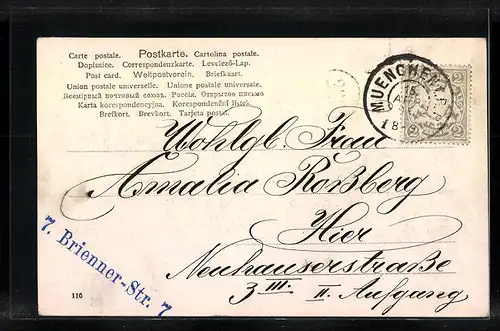 Carte postale. Postkarte. Cartolina postale.
Dopisnice. Correspondenzkarte. Levelező-Lap.
Post card. Weltpostverein. Briefkaart.
Union postale universelle. Unione postale universale.
Всемірный почтовый союзъ. Россія. Открытое письмо
Karta korespondencyjna. Korespondenční listek.
Brefkort. Brevkort. Tarjeta postal.
MUENCHEN
2 2
Wohlgb. Frau
Amalia Roßberg
Hier
Neuhauserstraße
3 III. II. Aufgang
7. Brienner-Str. 7
116